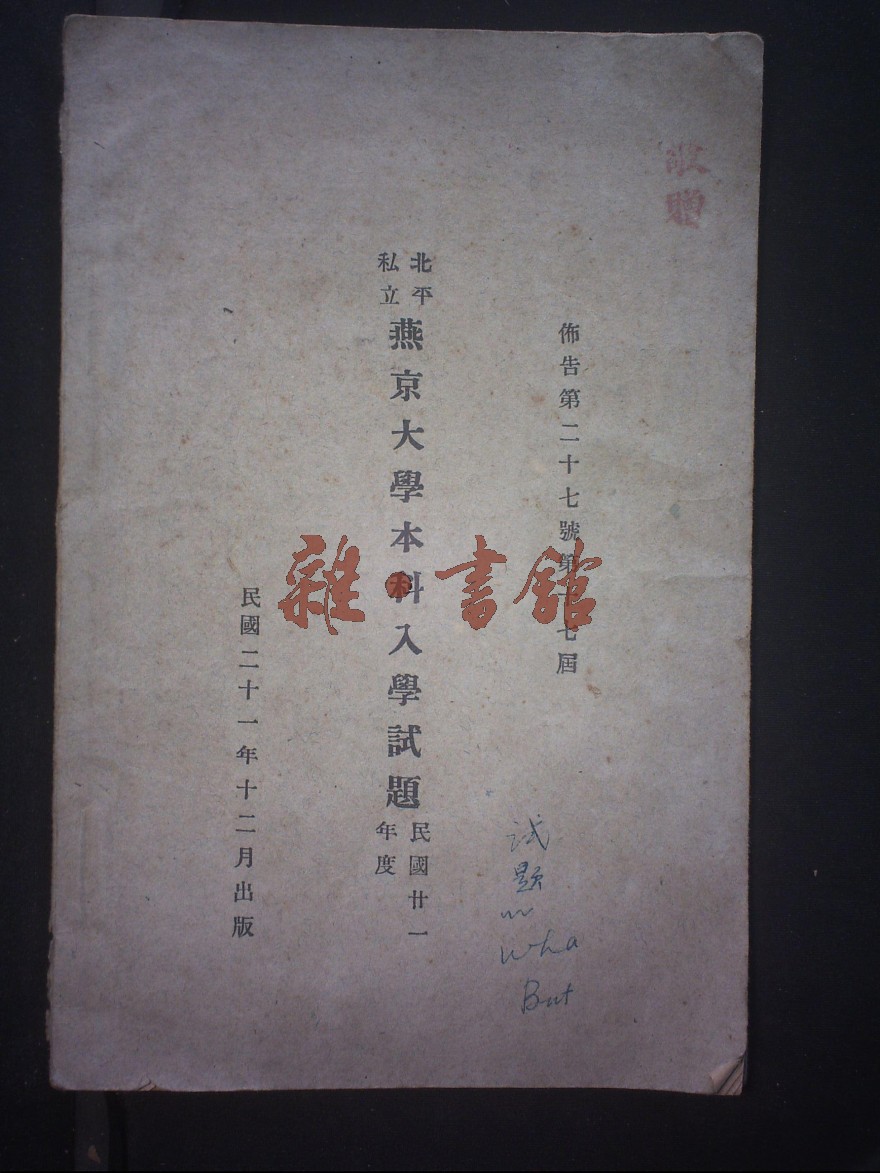 敬贈
佈告第二十七號第十七屆
北平
私立
燕京大學本科入學試題
民國廿一
年度
民國二十一年十二月出版
試題
Wha
But
雜書館